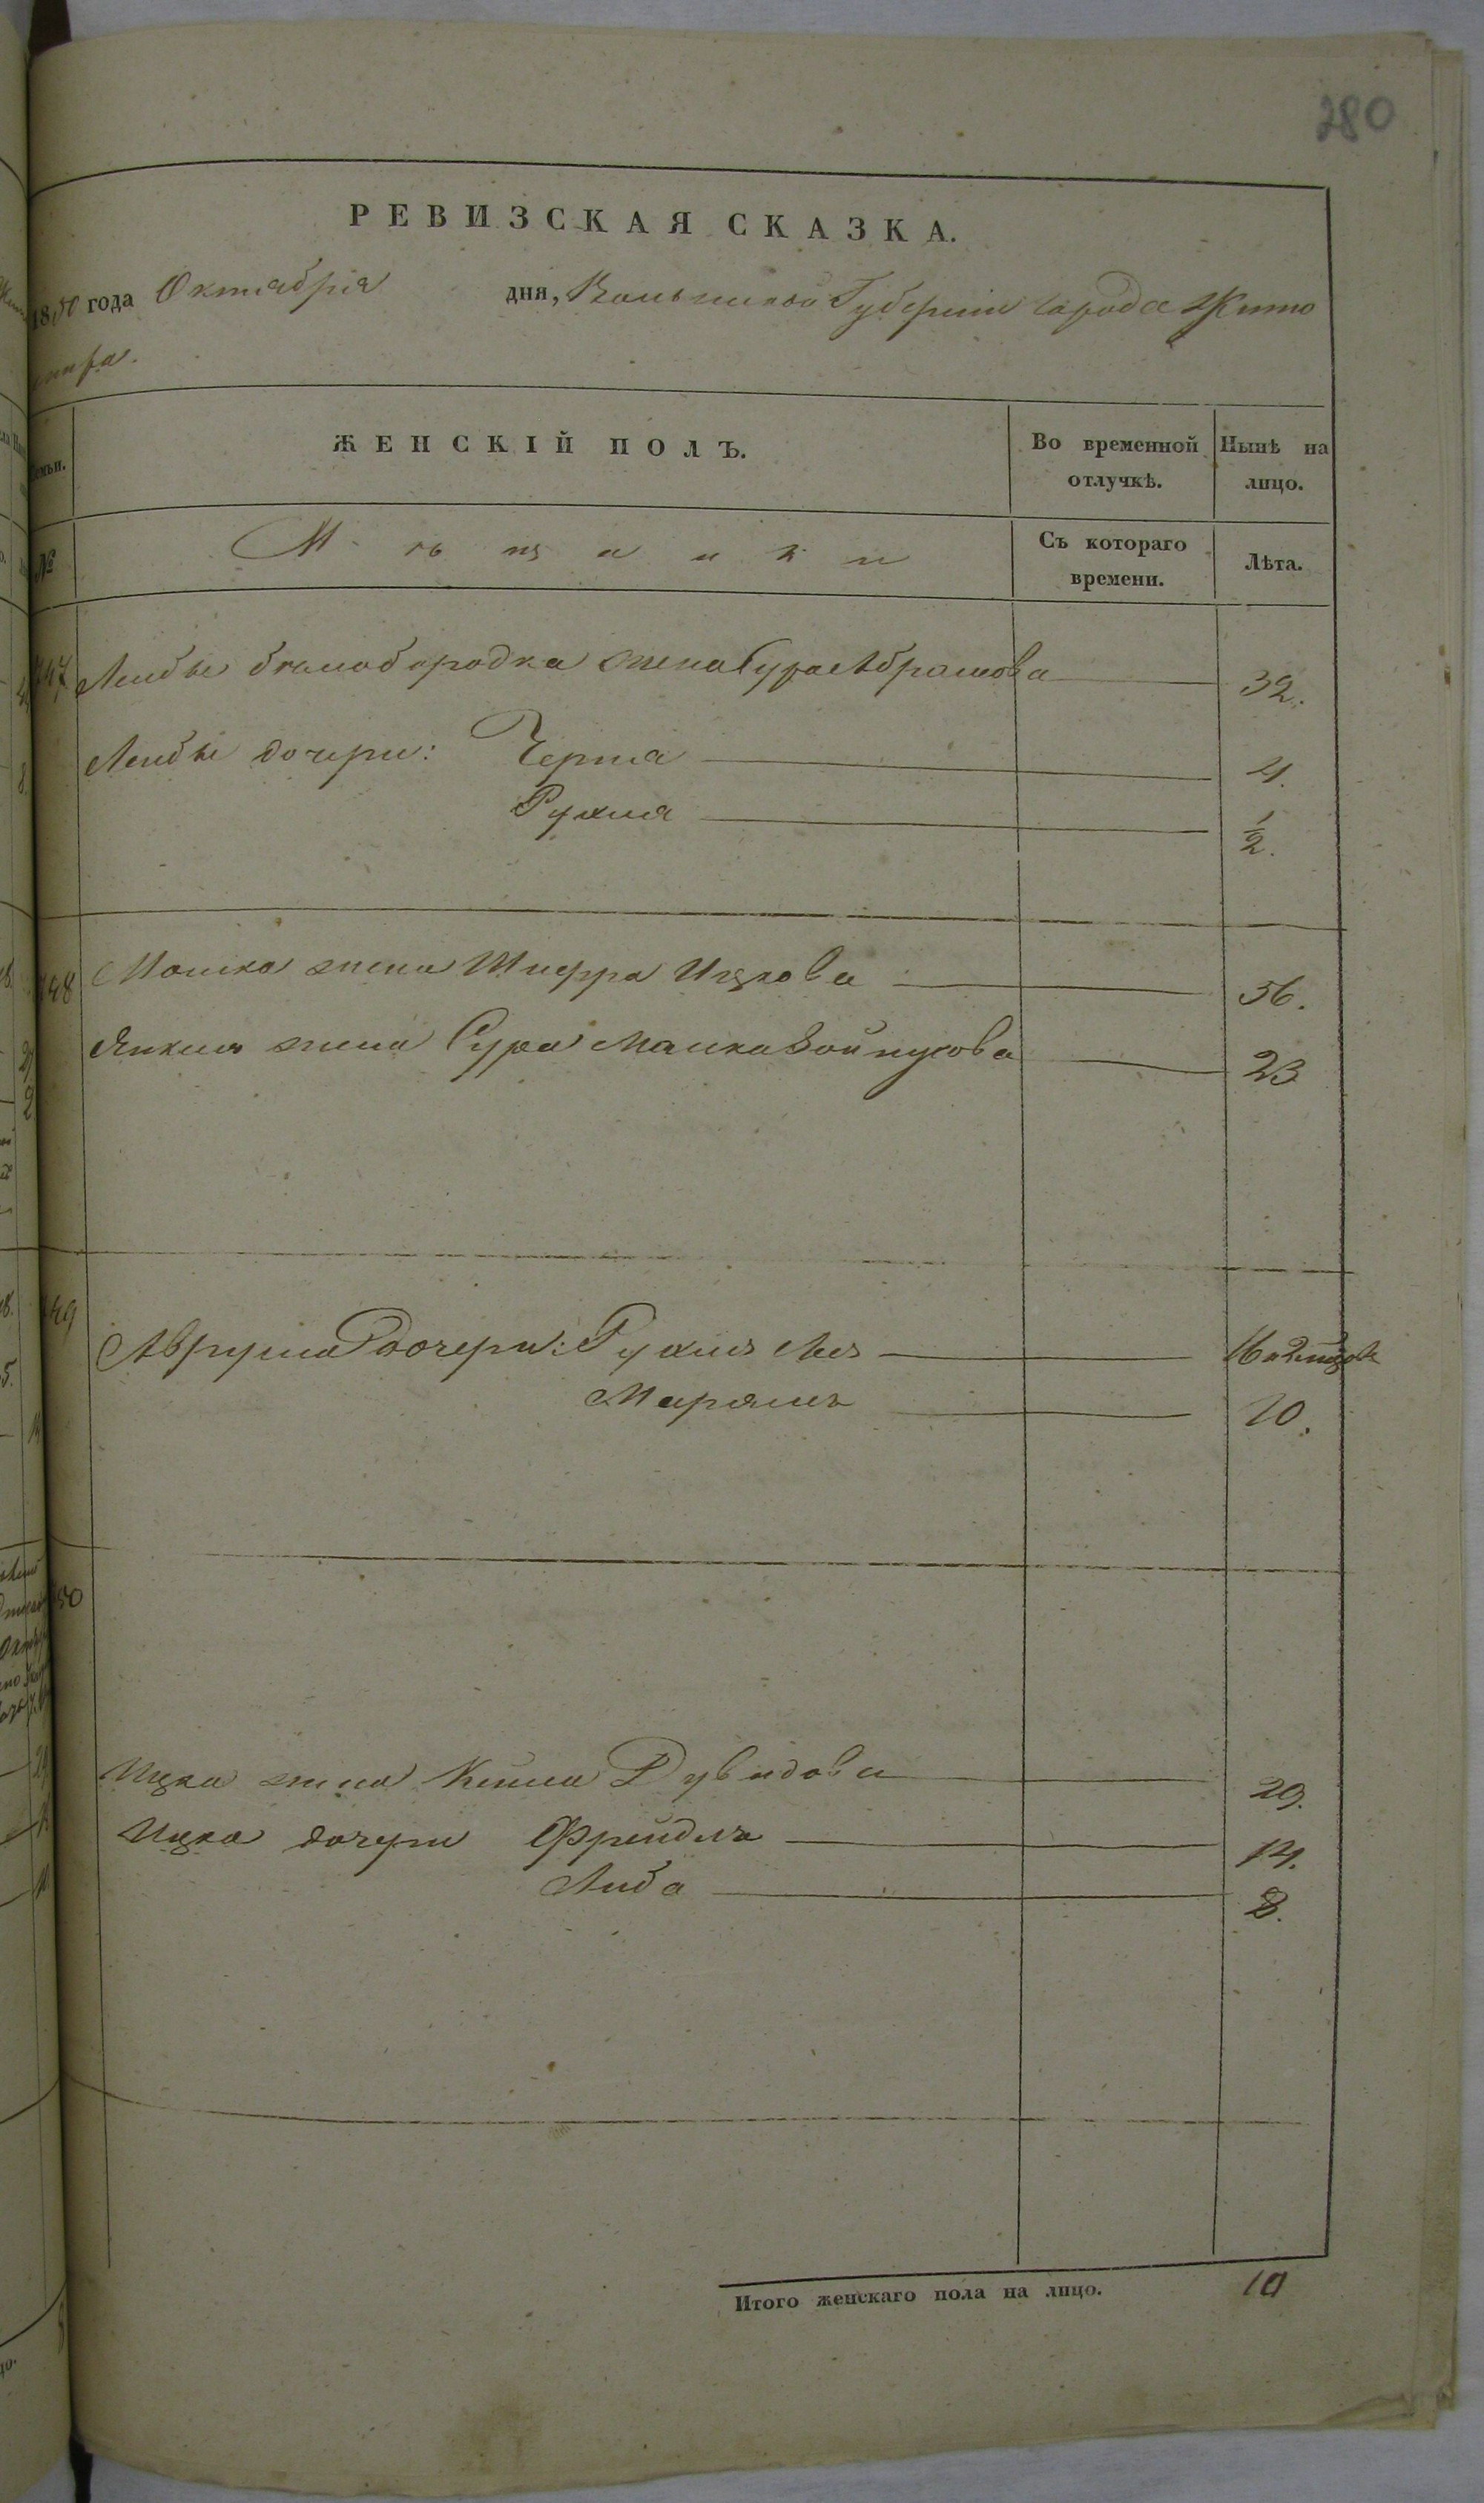 280
РЕВИЗСКАЯ СКАЗКА.
1850 года Октабрія дня, Волынской Губерніи города Жито
мира.
Семьи. ЖЕНСКІЙ ПОЛЪ. Во временной отлучкѣ. Нынѣ на лицо.
№ Мѣщанки Съ котораго времени. Лѣта.
147 Лейбы бѣлобородка жена Сура Абрамова 32.
Лейбы дочери: Черна 4.
Рухля ½.
148 Мошка жена Шифра Ицкова 56.
Янкеля жена Сура Малка 23
149 Аврума дочери: Рухля Лея 16
Марямъ 10.
150
Ицка жена Дувидова 29.
Ицка дочери Фрейдля 14.
Либа 8.
Итого женскаго пола на лицо. 10